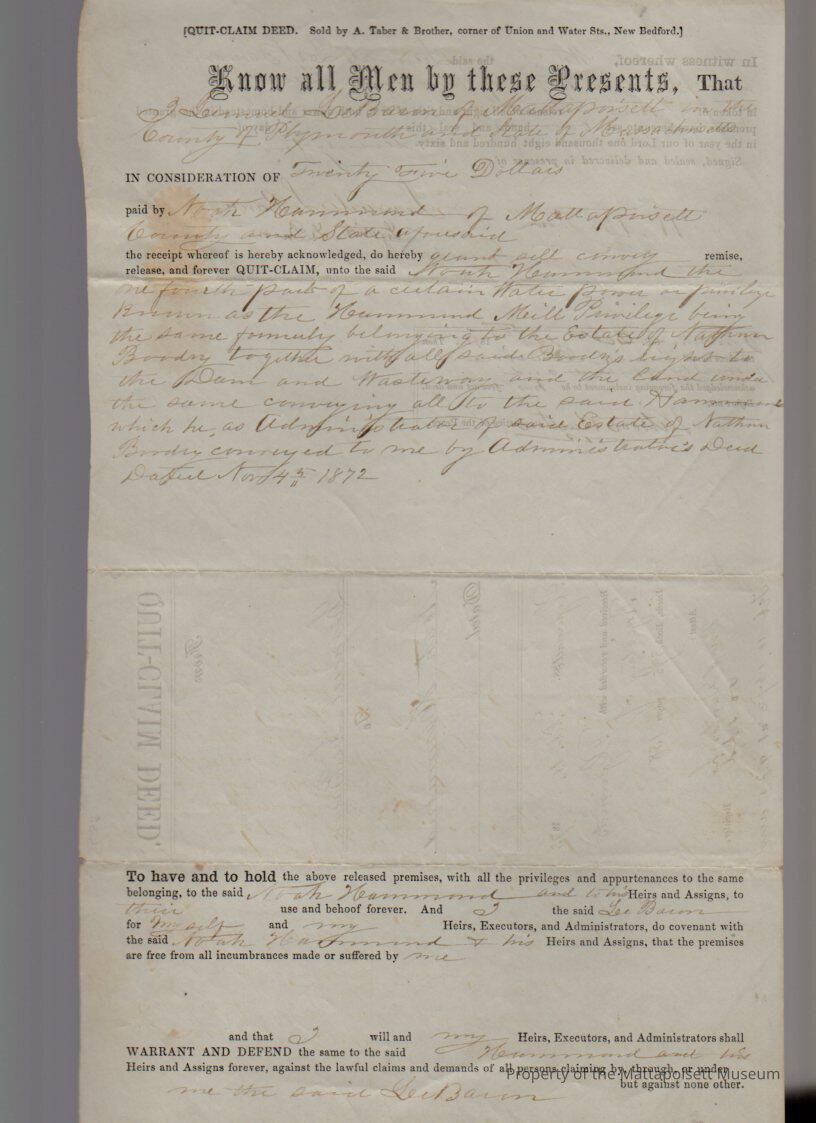 [QUIT-CLAIM DEED. Sold by A. Taber & Brother, corner of Union and Water Sts., New Bedford.]
Know all Men by these Presents, That
I LeBaron of Mattapoisett in the
County of Plymouth and State of Massachusetts
IN CONSIDERATION OF Twenty Five Dollars
paid by Noah Hammond of Mattapoisett
County and State aforesaid
the receipt whereof is hereby acknowledged, do hereby grant sell convey remise,
release, and forever QUIT-CLAIM, unto the said Noah Hammond the
one fourth part of a certain Water power or privilege
Known as the Hammond Mill Privilege being
the same formerly belonging to the Estate of Nathan
Boodry together with all said Boodry's rights to
the Dam and Wasteway and the land under
the same conveying all to the said Hammond
which he as Administrator of said Estate of Nathan
Boodry conveyed to me by Administrator's Deed
Dated Nov 4th 1872
QUIT-CLAIM DEED.
To have and to hold the above released premises, with all the privileges and appurtenances to the same
belonging, to the said Noah Hammond and to his Heirs and Assigns, to
their use and behoof forever. And I the said LeBaron
for myself and my Heirs, Executors, and Administrators, do covenant with
the said Noah Hammond & his Heirs and Assigns, that the premises
are free from all incumbrances made or suffered by me
and that I will and my Heirs, Executors, and Administrators shall
WARRANT AND DEFEND the same to the said Hammond and his
Heirs and Assigns forever, against the lawful claims and demands of all persons claiming by, through, or under
me the said LeBaron but against none other.
Property of the Mattapoisett Museum